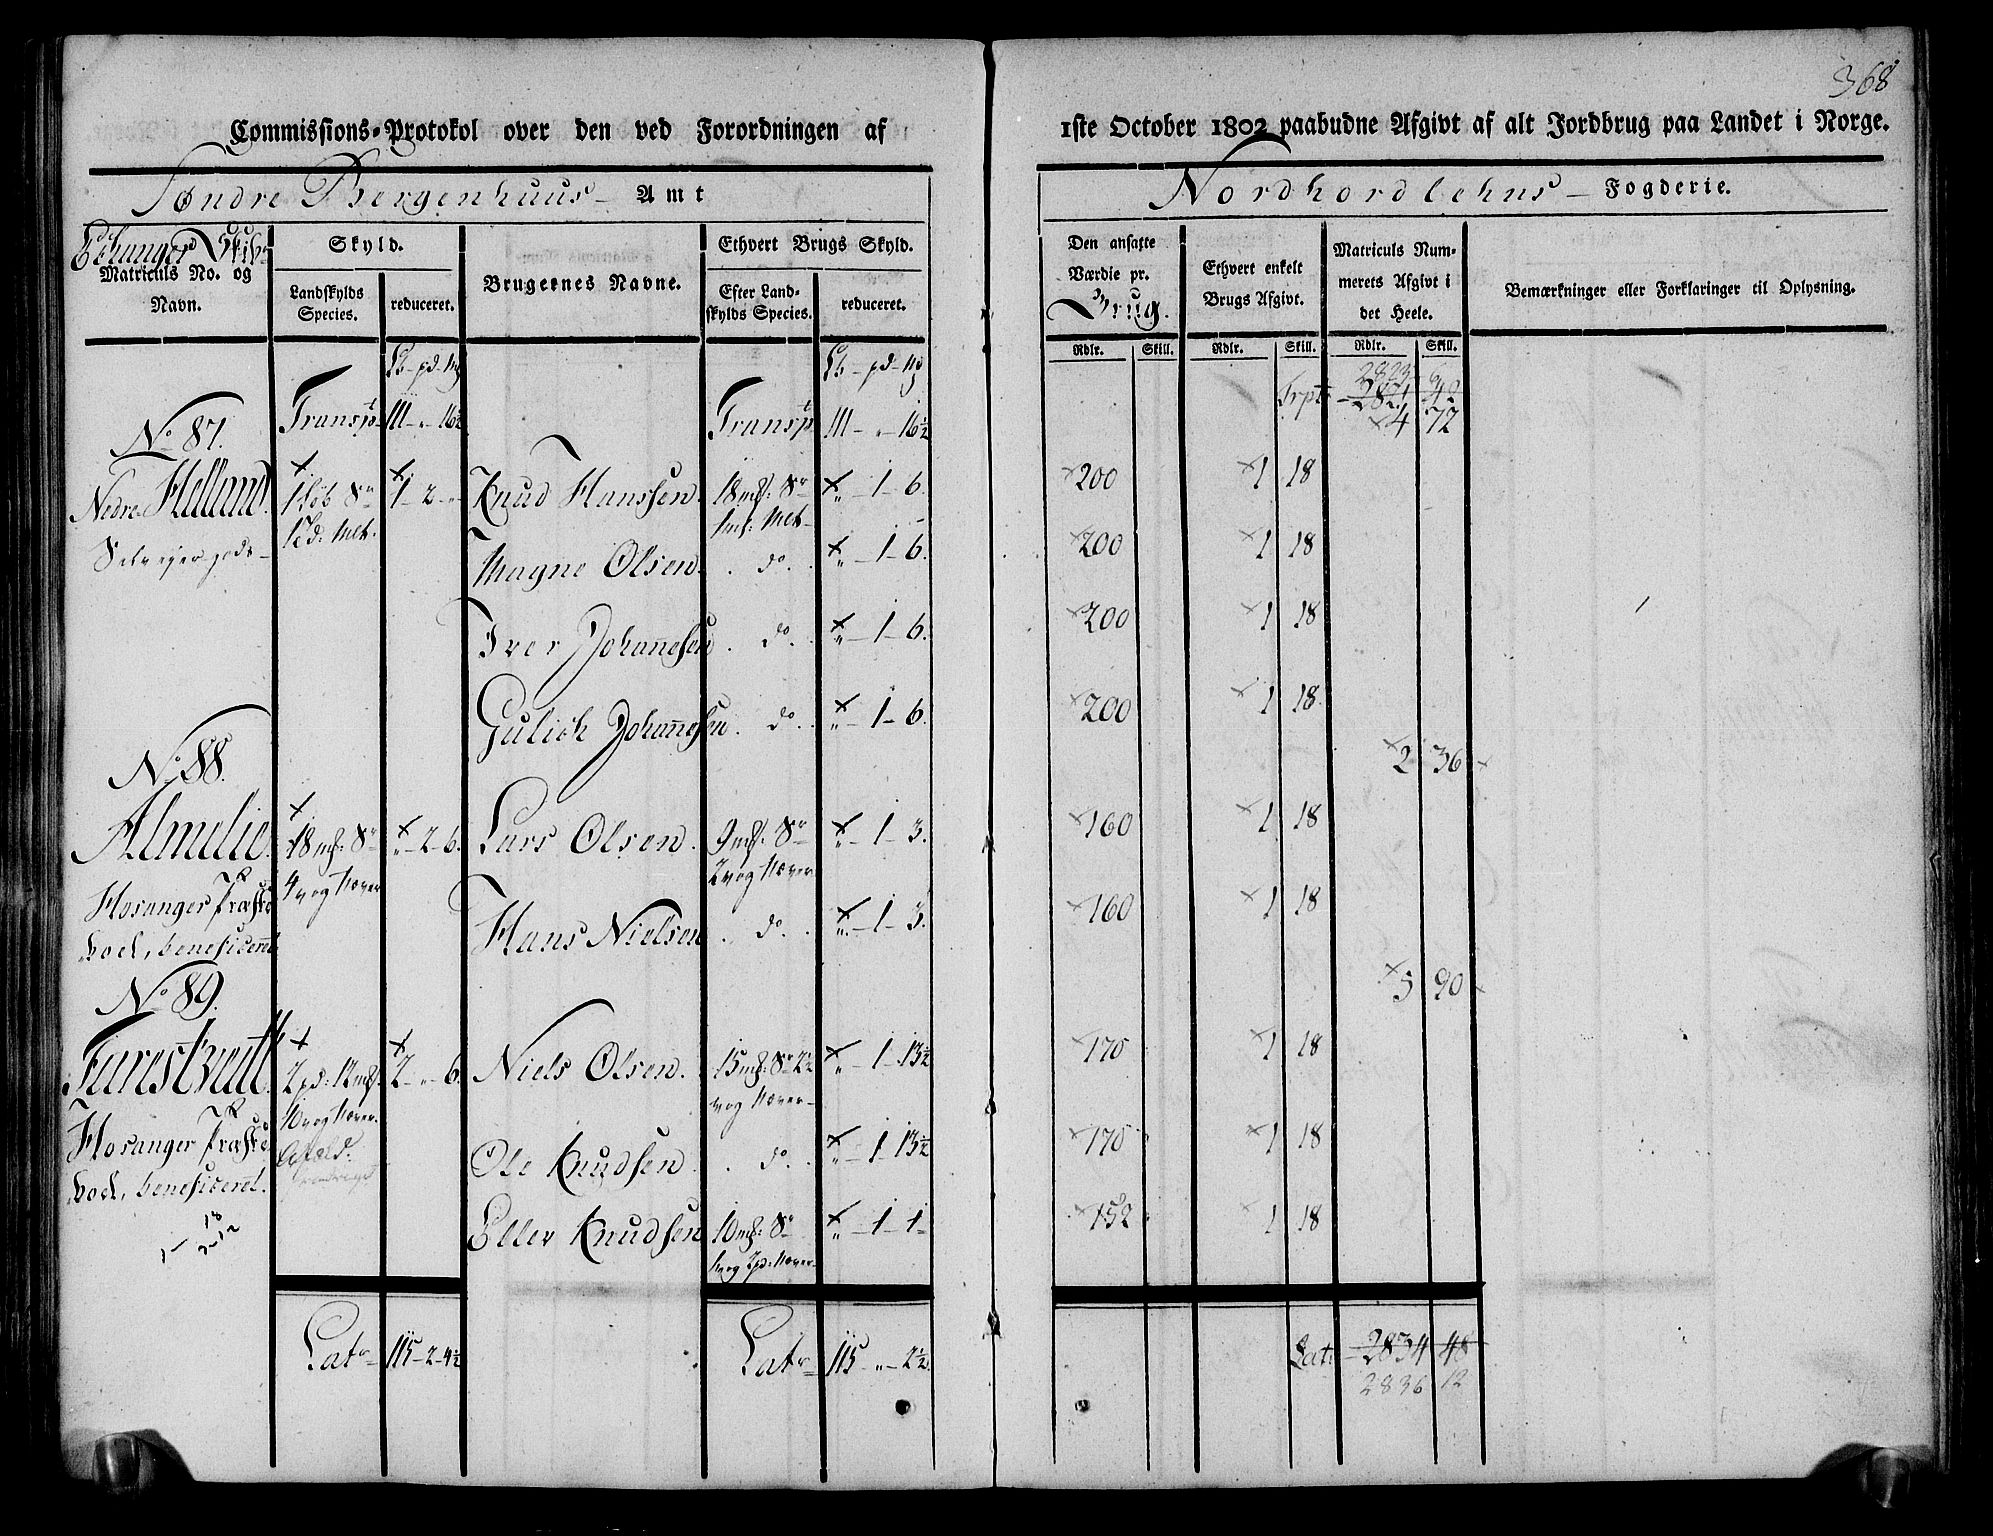 368
Commissions-Protokol over den ved Forordningen af 1ste October 1802 paabudne Afgivt af alt Jordbrug paa Landet i Norge.
Søndre Bergenhuus Amt
Nordhordlehns Fogderie.
Echanger Skibr
Matriculs No. og Navn.
Skyld.
Landskylds Species.
reduceret.
Brugernes Navne.
Ethvert Brugs Skyld.
Efter Landskylds Species.
reduceret.
Den ansatte Værdie pr. Brug.
Ethvert enkelt Brugs Afgivt.
Matriculs Nummerets Afgivt i det Heele.
Bemærkninger eller Forklaringer til Oplysning.
Rdlr. Skill. Rdlr. Skill. Rdlr. Skill.
Lb - pd - mg Lb - pd - mg
2823 6
Transpt 111 - " - 16½ Transpt 111 - " - 16½ Trpt 2821 42
No 87. 4 72
Nedre Helland. 1 Løb Sr 1 - 2 - " Knud Hanssen. 18 mk: Sr " - 1 - 6. 200 1 18
Selvejergods 1 Td: Melt. 1 mk: Melt
Magne Olsen do. " - 1 - 6. 200 1 18
Iver Johannesen do. " - 1 - 6. 200 1 18
Gulich Johannesen do. " - 1 - 6. 200 1 18
No 88. 2 36
Almelie. 18 mk: Sr " - 2 - 6. Lars Olsen. 9 mk: Sr " - 1 - 3. 160 1 18
4 vog Næver 2 vog Næver
Hosanger Præste
boel, beneficeret Hans Nielsen do. " - 1 - 3. 160 1 18
No 89. 3 90
Furestvett 2 pd: 12 mk: 2 - " - 6. Niels Olsen. 15 mk: Sr 2½ " - 1 - 13½ 170 1 18
10 vog Næver. vog Næver
Hosanger Præste
boel, beneficeret. Ole Knudsen do. " - 1 - 13½ 170 1 18
Eller Knudsen 10 mk: Sr " - 1 - 1 - 152 1 18
1 vog 2 pd: Næver
Latr 115 - 2 - 4½ Latr 115 - " - 2½. Latr 2834 48
2836 12